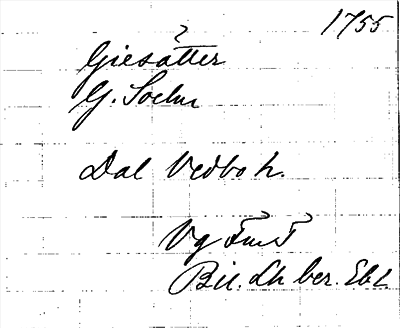 1755
Giesätter
G. Soelm
Dal Vedbo h.
Vg
Bil. Lh ber. Ebl.